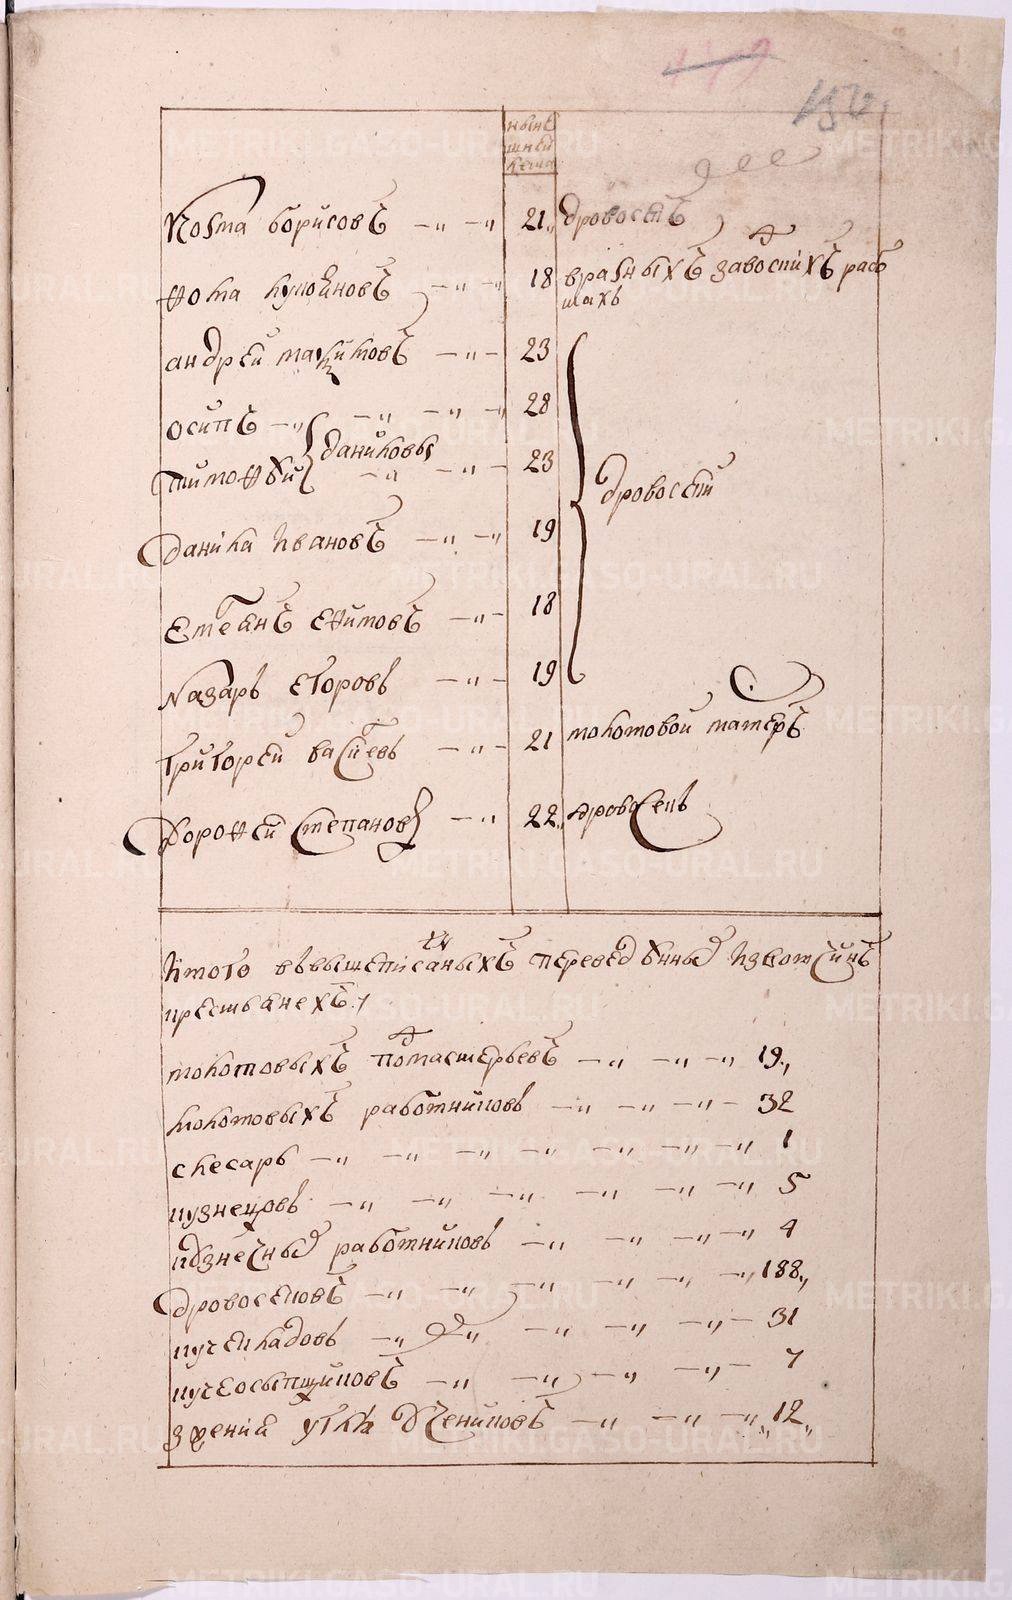 нынѣ
шнѣй
лета
Козма борисовъ 21 дровосекъ
Фома лукояновъ 18 вразныхъ завоцкихъ рабо
тахъ
андрей макѣимовъ 23
осипъ 28
тимофѣй даниловы 23
дровосеки
данила Ивановъ 19
Степанъ ефимовъ 18
Назаръ егоровъ 19
григорей василевъ 21 молотовой мастеръ
дорофей степановъ 22 дровосекъ
Итого ввышеписаныхъ переведѣнныхъ извотчинъ
крестьянехъ
молотовыхъ подмастерьевъ 19
молотовыхъ работниковъ 32
слесарь 1
кузнецовъ 5
кузнечныхъ работниковъ 4
дровосековъ 188
кучекладовъ 31
кучеосыпщиковъ 7
зжения угля учениковъ 12